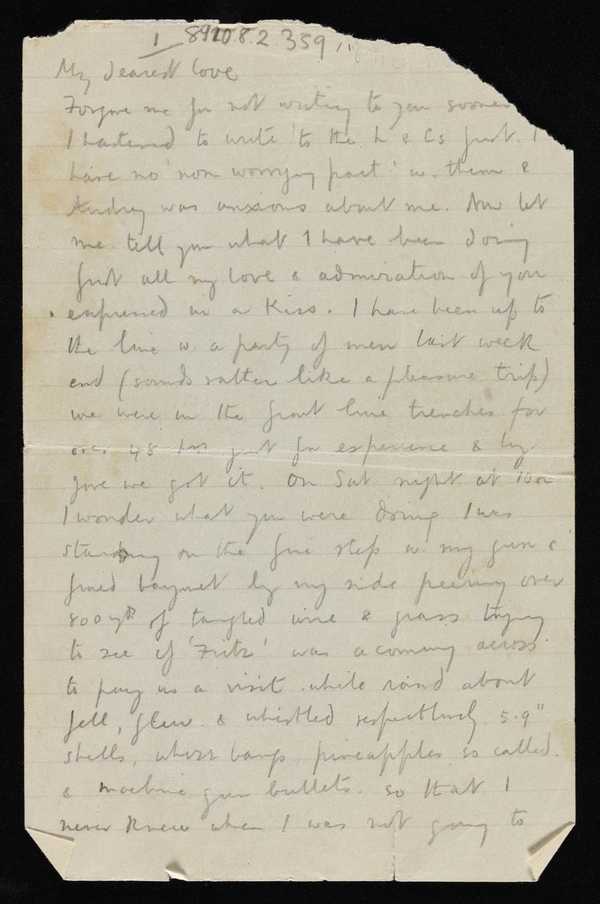 1 8920.8.2 359
My dearest love
Forgive me for not writing to you sooner
I hastened to write to the L & Cs first. I
have no 'non worrying pact' w. them &
Audrey was anxious about me. Now let
me tell you what I have been doing
first all my love & admiration of you
expressed in a Kiss. I have been up to
the line w. a party of men last week
end (sounds rather like a pleasure trip)
we were in the front line trenches for
48 hrs just for experience & by
Jove we got it. On Sat night at
I wonder what you were doing I was
standing on the fire step w. my gun &
fixed bayonet by my side peering over
800 yds of tangled wire & grass trying
to see if 'Fritz' was a coming across
to pay us a visit while round about
fell, flew & whistled respectively 5.9"
shells, whizz bangs, pineapples so called
& machine gun bullets. so that I
never knew when I was not going to